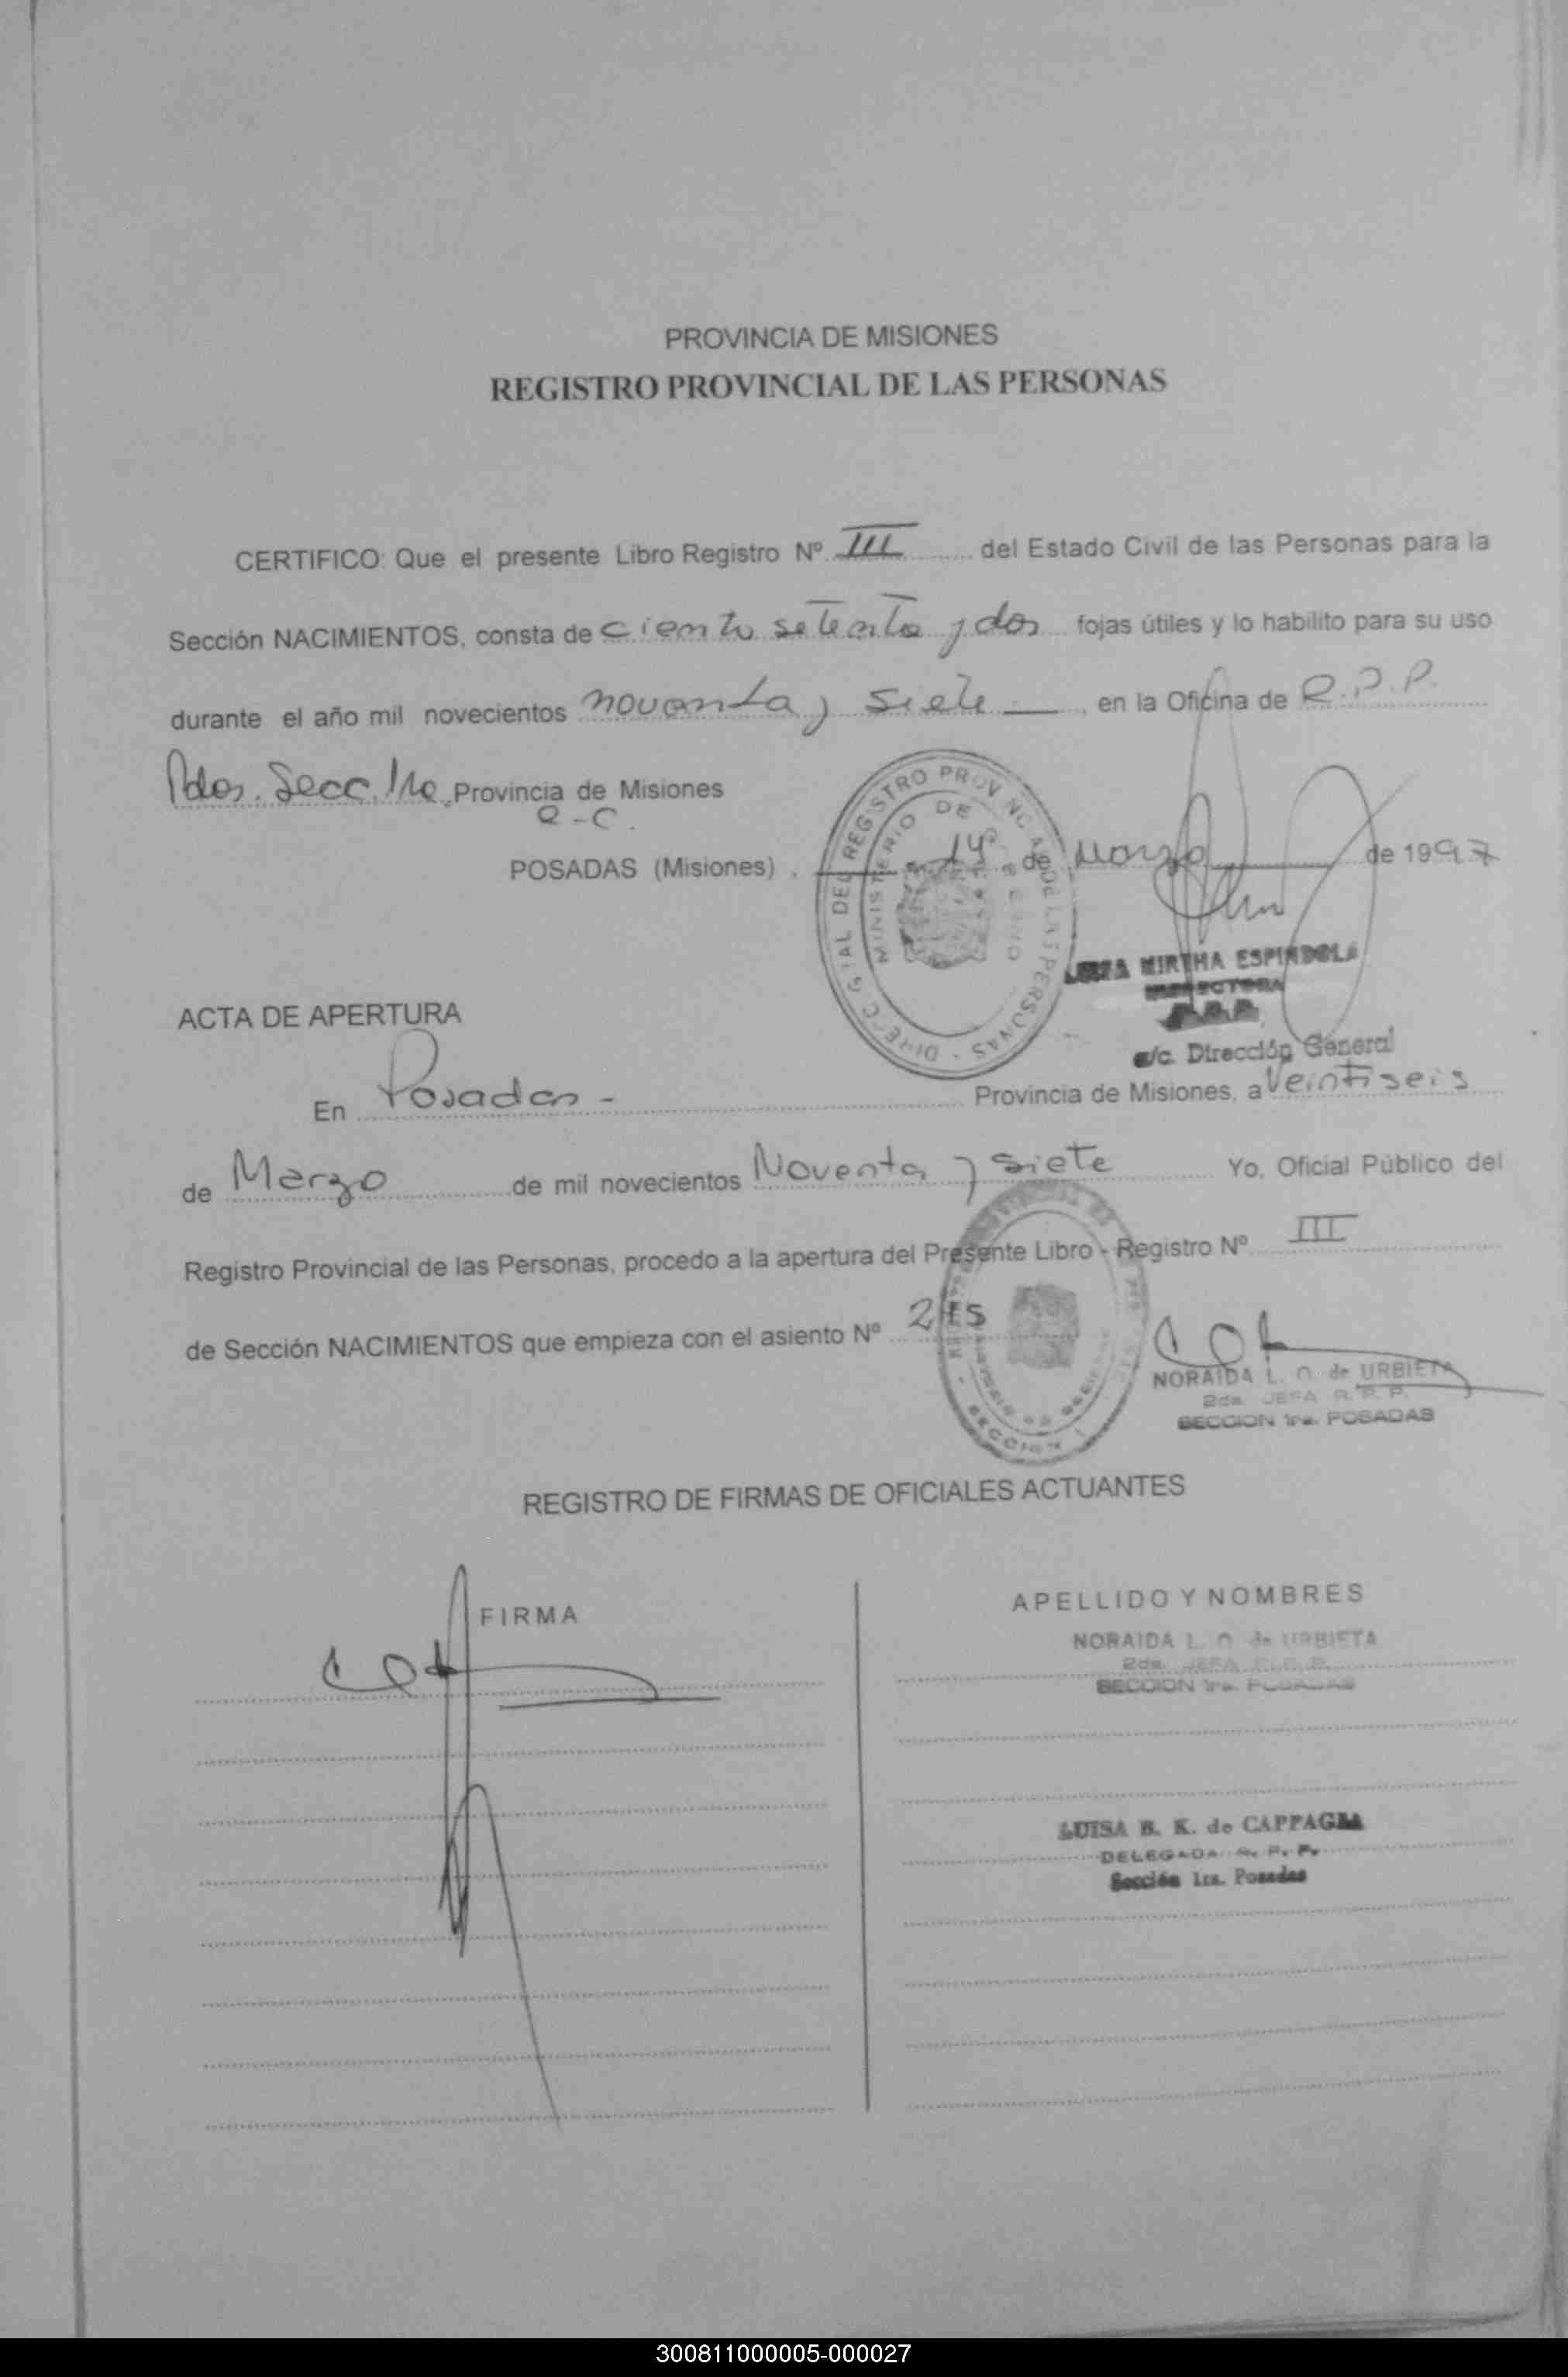 PROVINCIA DE MISIONES
REGISTRO PROVINCIAL DE LAS PERSONAS
CERTIFICO: Que el presente Libro Registro Nº III del Estado Civil de las Personas para la
Sección NACIMIENTOS, consta de ciento setenta y dos fojas útiles y lo habilito para su uso
durante el año mil novecientos noventa y siete, en la Oficina de R.P.P.
Pdas. Secc. 1ra, Provincia de Misiones
POSADAS (Misiones), 14 de Marzo de 1997
MIRTHA ESPINDOLA
a/c. Dirección General
ACTA DE APERTURA
En Posadas - Provincia de Misiones, a Veintiseis
de Marzo de mil novecientos Noventa y siete Yo, Oficial Público del
Registro Provincial de las Personas, procedo a la apertura del Presente Libro - Registro Nº III
de Sección NACIMIENTOS que empieza con el asiento Nº
NORAIDA L. O. de URBIETA
2da. JEFA R. P. P.
SECCION 1ra. POSADAS
REGISTRO DE FIRMAS DE OFICIALES ACTUANTES
FIRMA
APELLIDO Y NOMBRES
NORAIDA L. O. de URBIETA
2da. JEFA R. P. P.
SECCION 1ra. POSADAS
LUISA B. K. de CAPPAGLIA
DELEGADA R. P. P.
Sección 1ra. Posadas
300811000005-000027